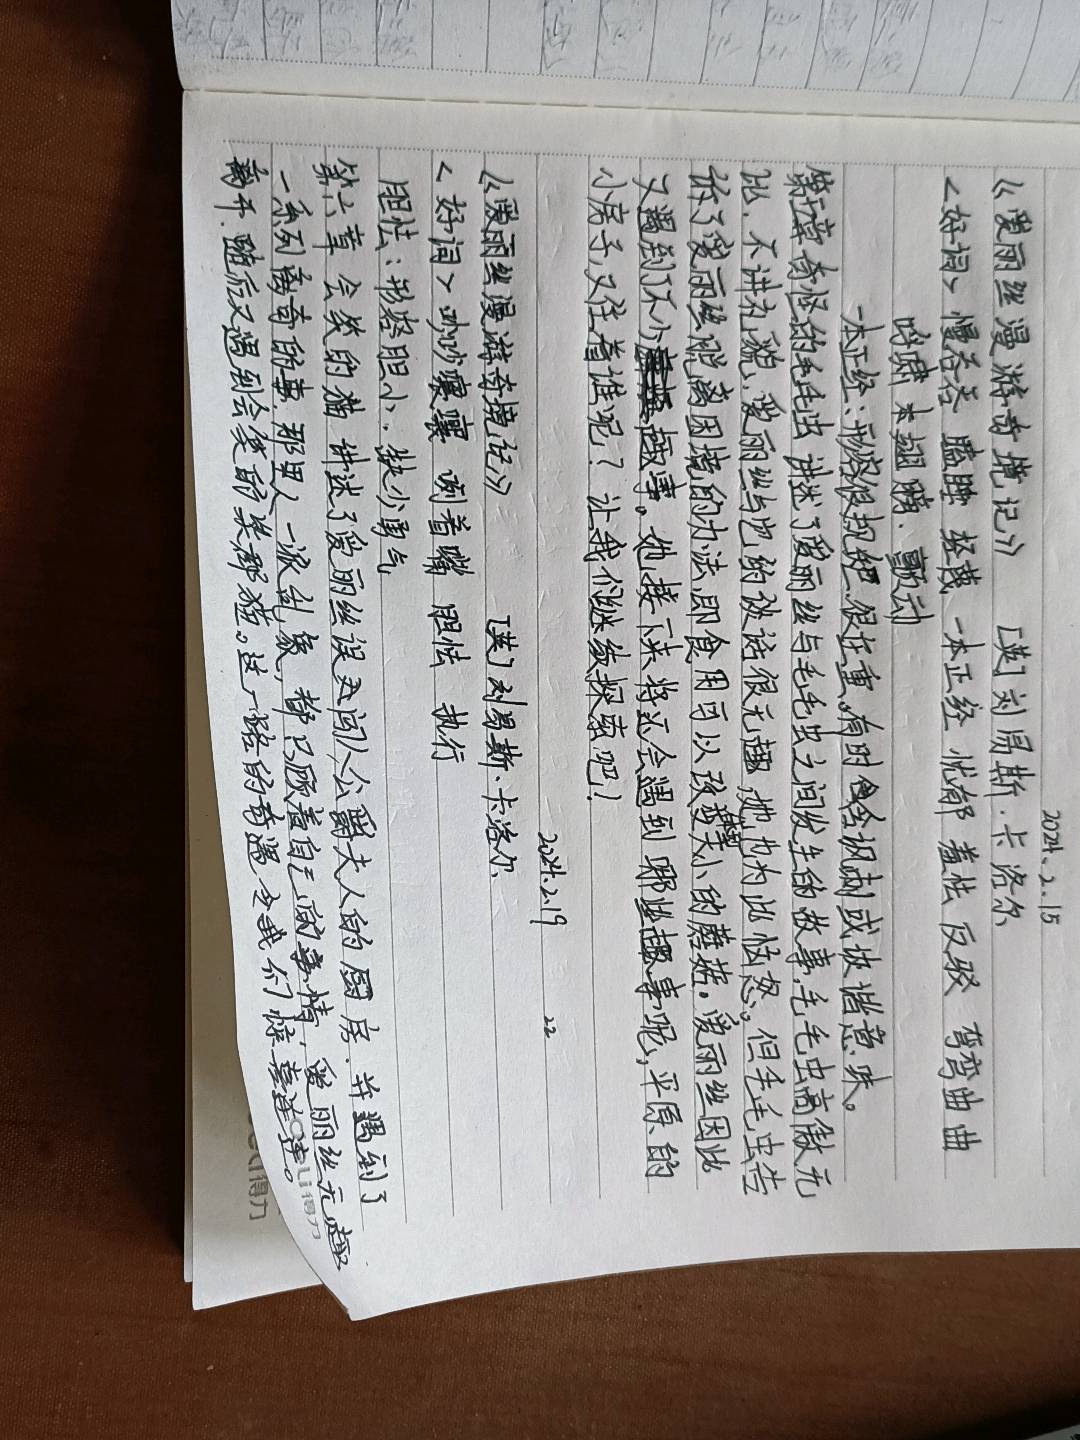 2024.2.15
《爱丽丝漫游奇境记》 [英]刘易斯·卡洛尔
<好词> 慢吞吞 瞌睡 轻蔑 一本正经 忧郁 羞怯 反驳 弯弯曲曲
呼啸 翅膀、颤动
一本正经：形容很规矩,很庄重。有时含讽刺或诙谐意味。
第五章 奇怪的毛毛虫 讲述了爱丽丝与毛毛虫之间发生的故事,毛毛虫高傲无
比,不讲礼貌,爱丽丝与它的谈话很无趣,她也为此恼怒。但毛毛虫告
诉了爱丽丝脱离困境的办法,即食用可以改变大小的蘑菇。爱丽丝因此
又遇到了不少趣事。她接下来将还会遇到哪些趣事呢,平原的
小房子,又住着谁呢?让我们继续探索吧!
2024.2.19
22
《爱丽丝漫游奇境记》 [英]刘易斯·卡洛尔
<好词> 吵吵嚷嚷 咧着嘴 胆怯 执行
胆怯：形容胆小、缺少勇气
第六章 会笑的猫 讲述了爱丽丝误闯入公爵夫人的厨房,并遇到了
一系列离奇的事,那里人一派乱象,都只顾着自己的事情,爱丽丝无趣
离开,随后又遇到会笑的柴郡猫。这一路的奇遇令我们惊喜连连。
deli得力
deli得力